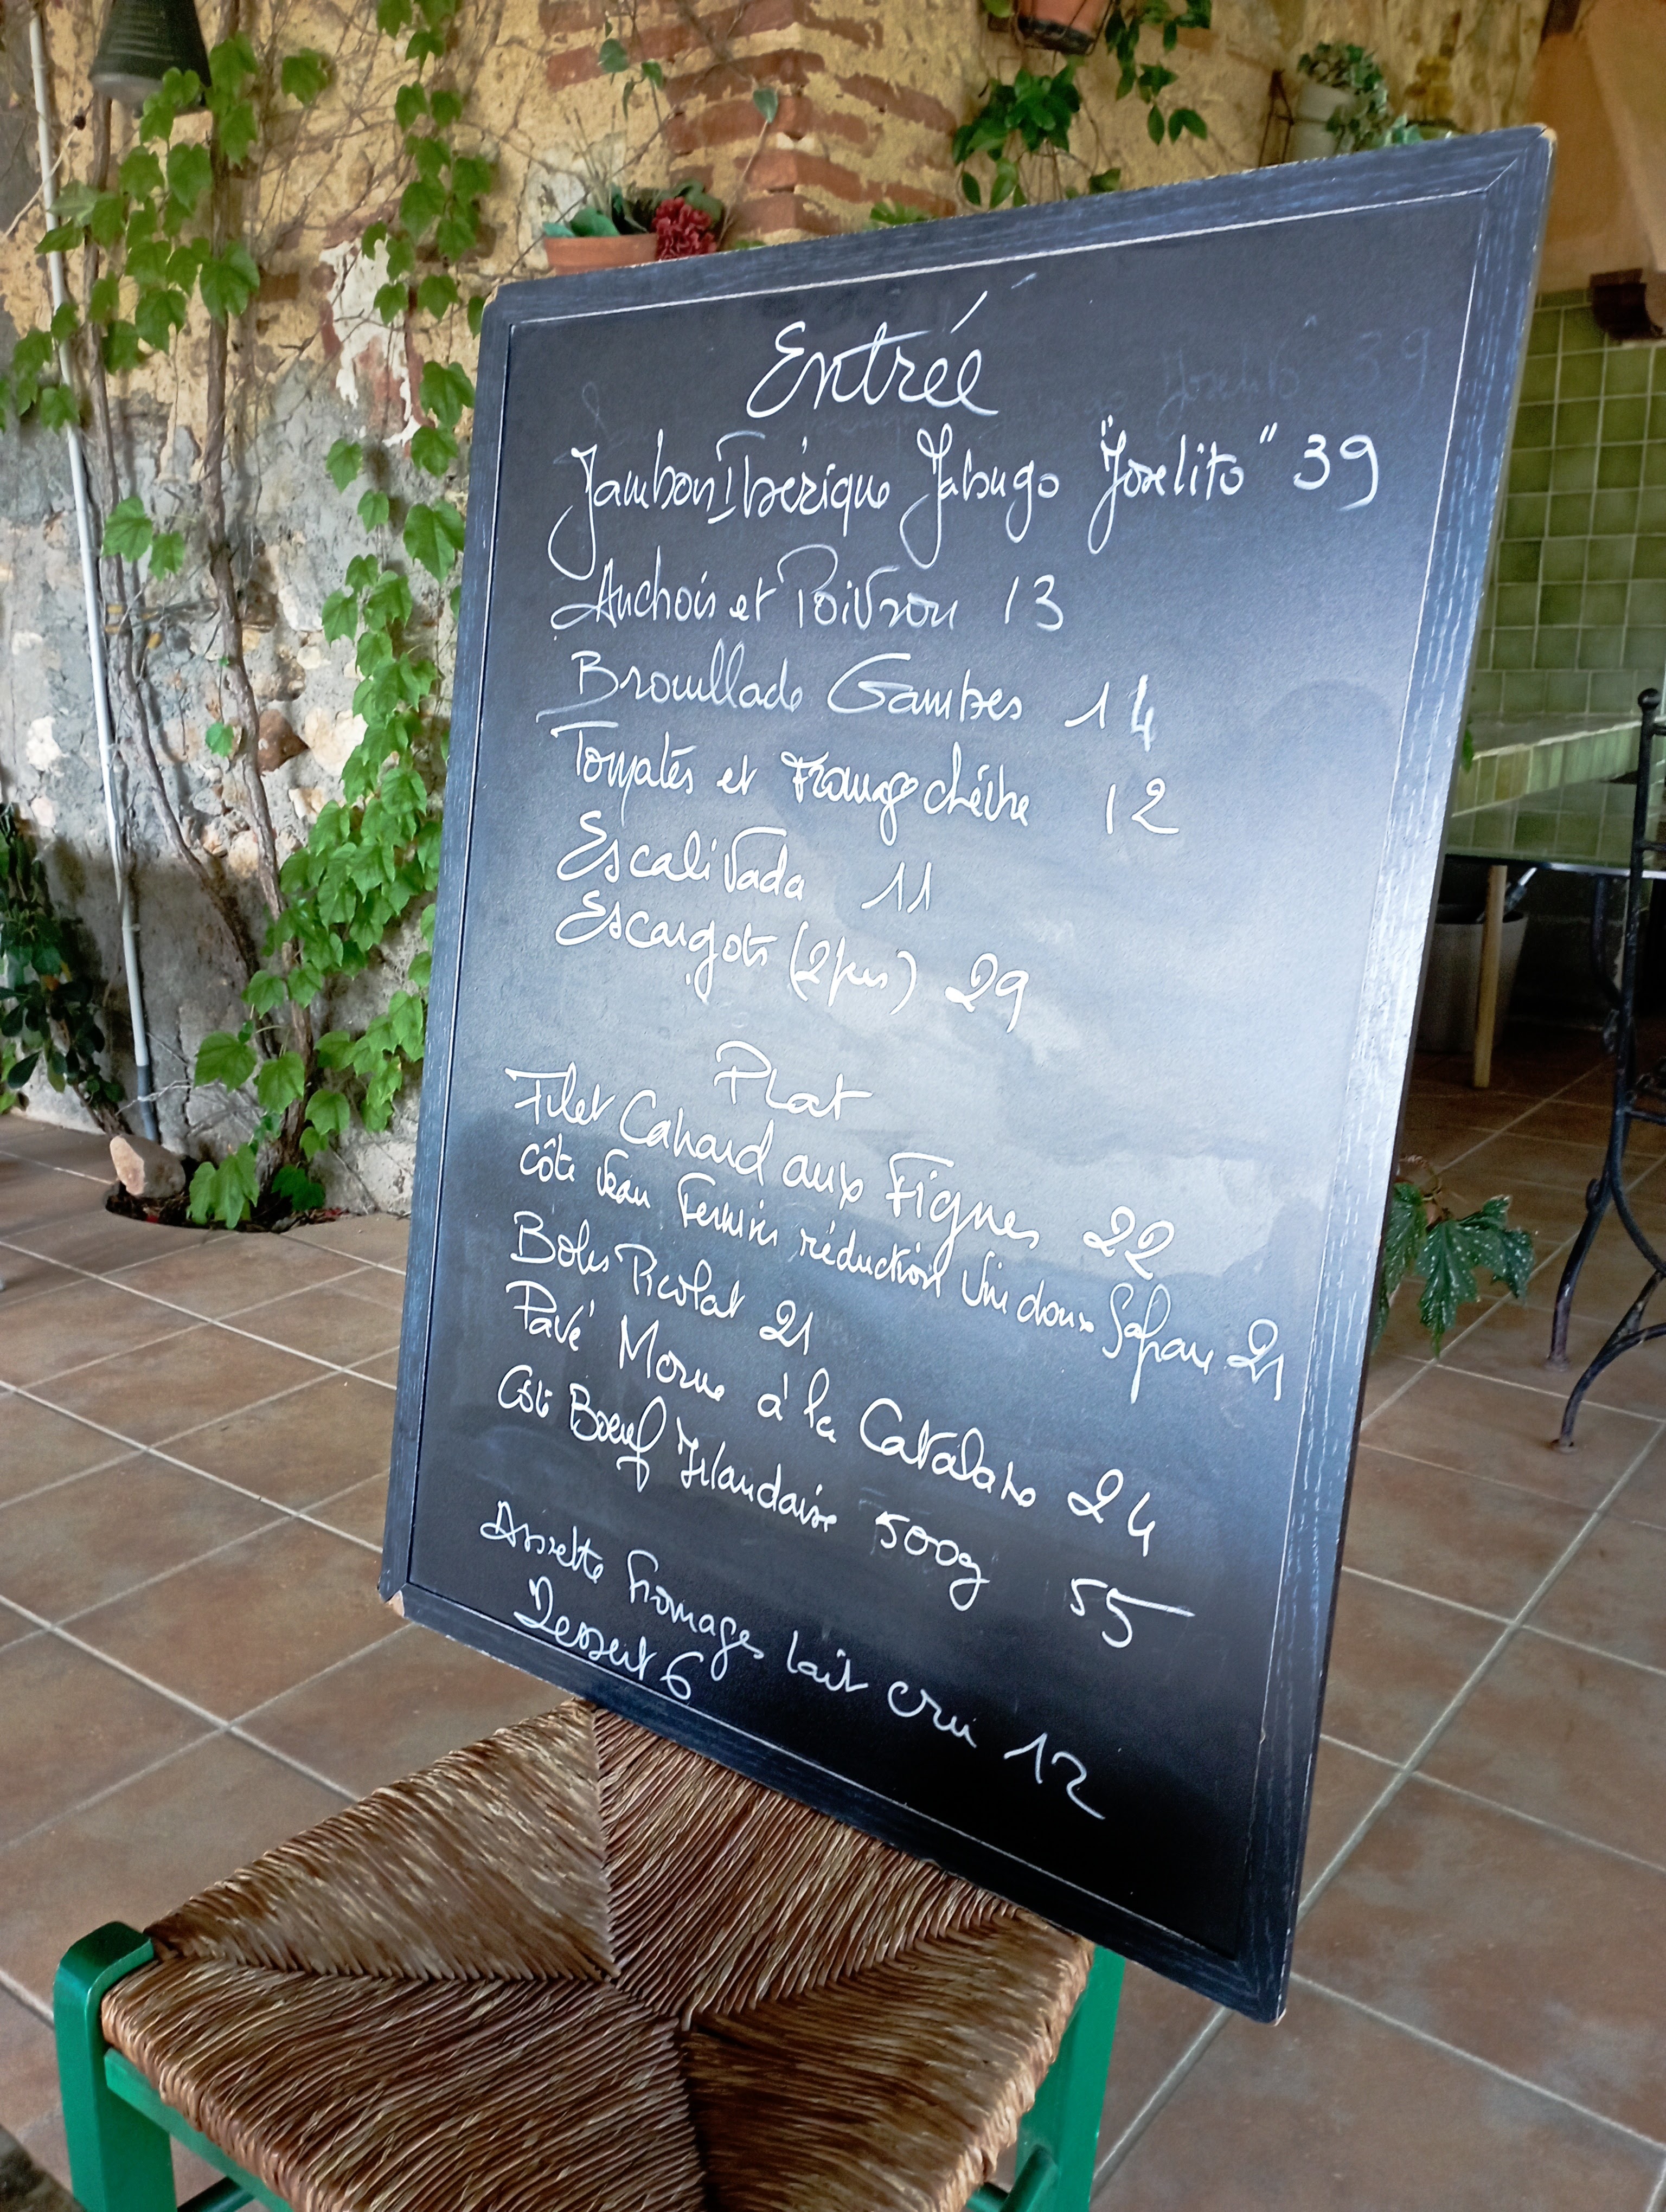 Entrée
Jambon Ibérique Jabugo "Joselito" 39
Anchois et Poivron 13
Brouillade Gambes 14
Tomatés et Fromage chèvre 12
Escalivada 11
Escargots (2 pers) 29
Plat
Filet Canard aux Figues 22
Côte Veau Fermier réduction Vin doux Safran 21
Boles Picolat 21
Pavé Morue à la Catalane 24
Côte Boeuf Irlandaise 500g 55
Assiette Fromages lait cru 12
Dessert 6